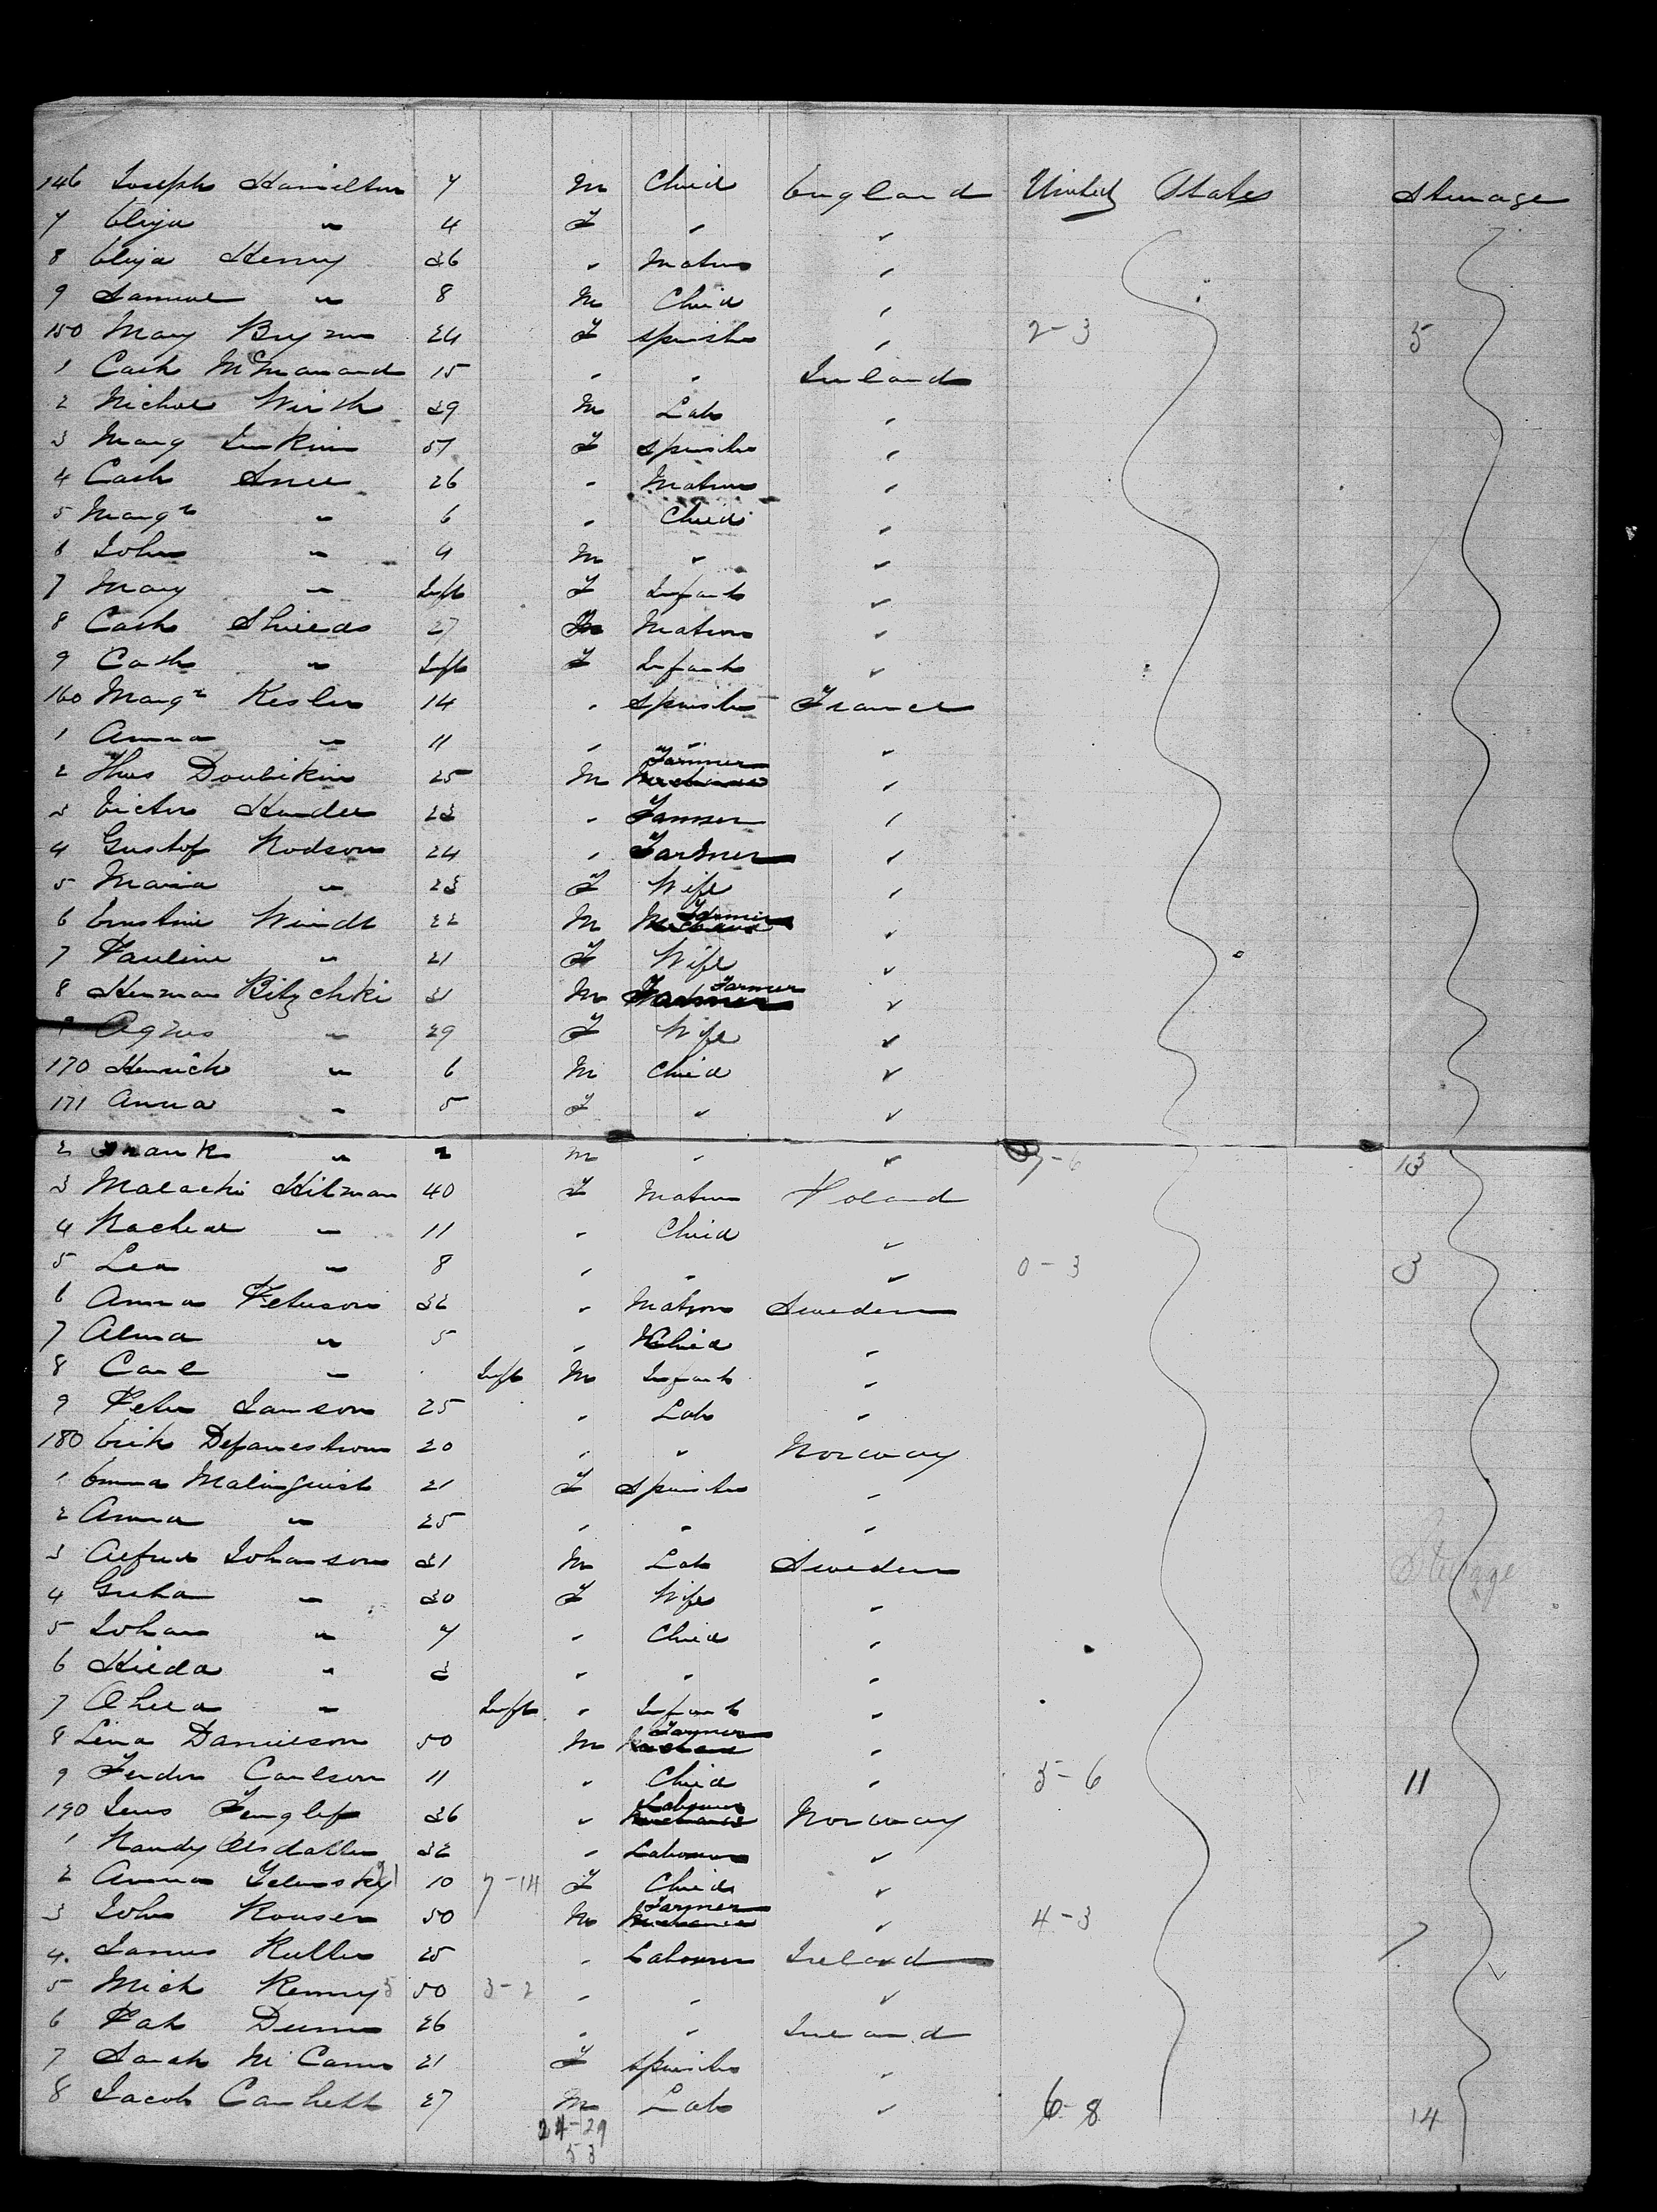 146 Joseph Hamilton 7 M Child England United States Steerage
7 Eliza " 4 F " "
8 Eliza Henry 36 " Matron "
9 Samuel " 8 M Child "
150 Mary 24 F Spinster " 2-3 5
1 Cath 15 " " Ireland
2 Michael 39 M Lab "
3 Marg 57 F Spinster "
4 Cath 26 " Matron "
5 Margr " 6 " Child "
6 John " 4 M " "
7 Mary " Inft F Infant "
8 Cath Shields 27 Matron "
9 Cath " Inft F Infant "
160 Margr Kesler 14 " Spinster France
1 Anna " 11 " " "
2 25 M Farmer "
3 Victor 23 " Farmer "
4 Gustof Rodson 24 " Farmer "
5 Maria " 23 F Wife "
6 Windt 22 M Farmer "
7 Pauline " 21 F Wife "
8 Herman Bilzchki 31 M Farmer "
9 Agnes " 29 F Wife "
170 Henrich " 6 M Child "
171 Anna " 5 F " "
2 Frank " 2 M " " 7-6 13
3 Malachi Hilman 40 F Matron Poland
4 Rachael " 11 " Child "
5 Lea " 8 " " " 0-3 3
6 Anna Peterson 32 " Matron Sweden
7 Alma " 5 " Child "
8 Carl " Inft M Infant "
9 Peter Janson 25 " Lab "
180 Erik 20 " " Norway
1 Emma Malinquist 21 F Spinster "
2 Anna " 25 " " "
3 Alfred Johanson 31 M Lab Sweden Steerage
4 Greta " 30 F Wife "
5 Johan " 7 " Child "
6 Hilda " 3 " " "
7 " Inft " Infant "
8 Lina Danielson 50 M Farmer "
9 Carlson 11 " Child " 5-6 11
190 Jens 36 " Labourer Norway
1 32 " Labourer "
2 Anna 10 7-14 F Child "
3 John 50 M Farmer " 4-3 7
4 James 25 " Labourer Ireland
5 Mich Kenny 50 3-2 " " "
6 Pat Dunn 26 " " Ireland
7 Sarah McCann 21 F Spinster "
8 Jacob 27 M Lab " 6-8 14
24-29
53